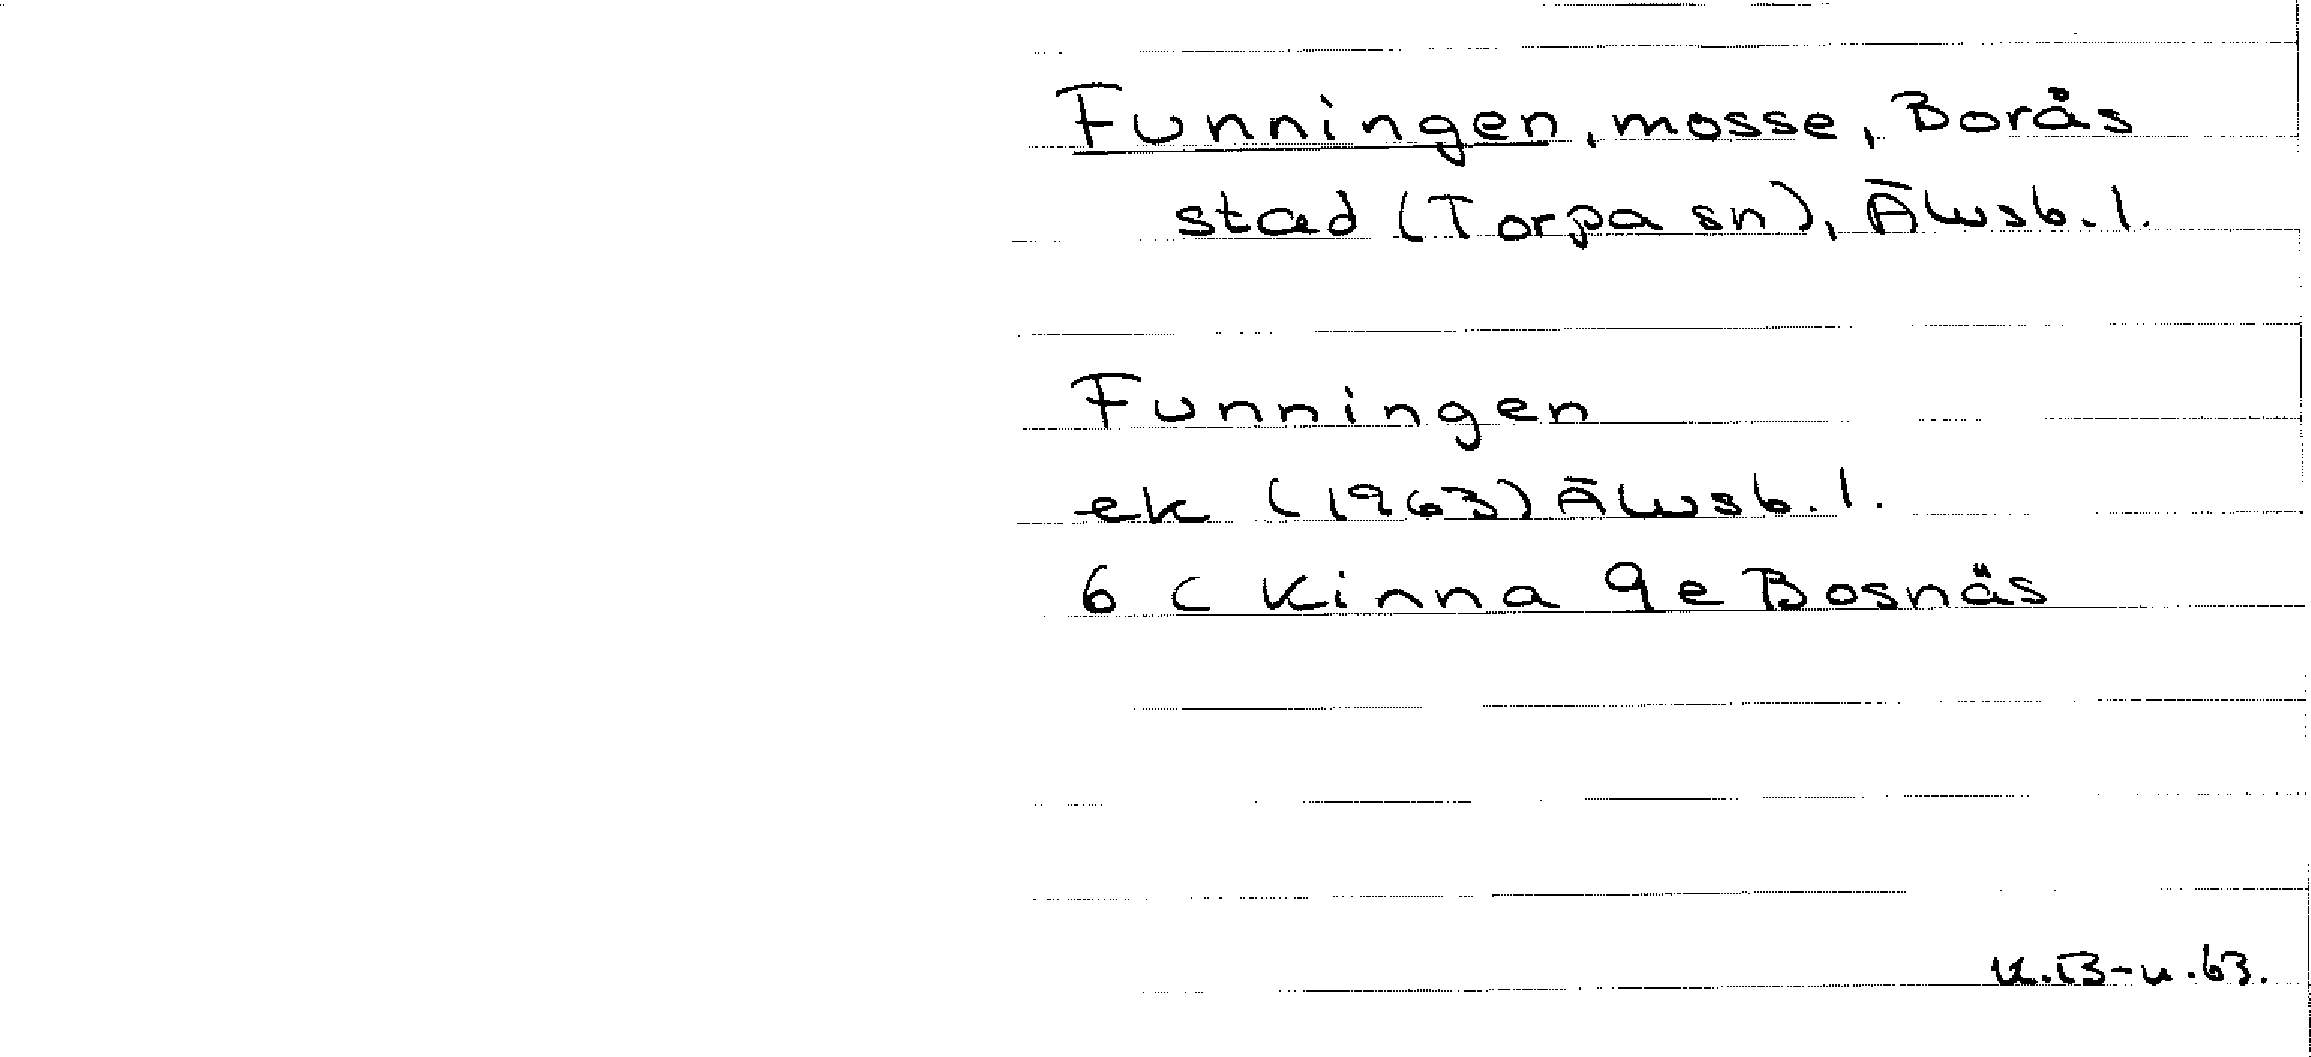 Funningen, mosse, Borås
stad (Torpa sn), Älvsb. l.
Funningen
ek (1963) Älvsb. l.
6 C Kinna 9e Bosnäs
K.B-n.63.